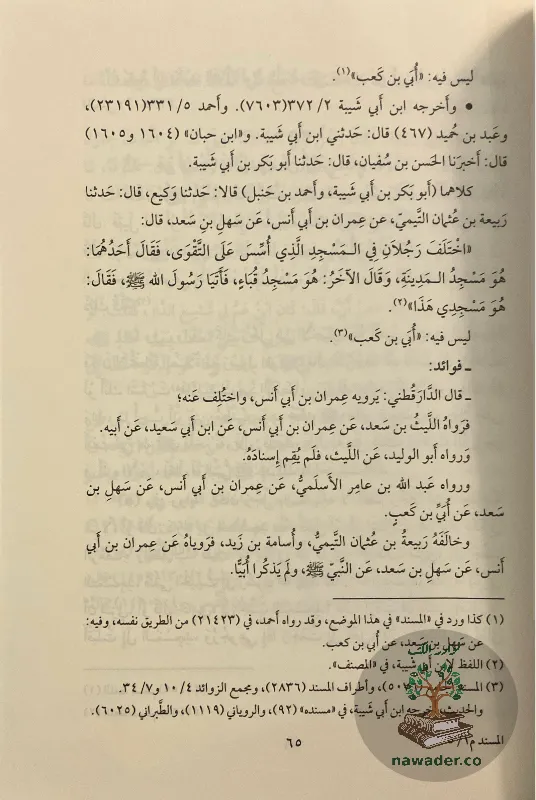 ليس فيه: «أُبَي بن كَعب»(١).
• وأخرجه ابن أبي شَيبة ٢/ ٣٧٢(٧٦٠٣). وأحمد ٥/ ٣٣١(٢٣١٩١)،
وعَبد بن حُميد (٤٦٧) قال: حَدثني ابن أبي شَيبة. و«ابن حبان» (١٦٠٤ و١٦٠٥)
قال: أَخبرَنا الحَسن بن سُفيان، قال: حَدثنا أَبو بكر بن أبي شَيبة.
كلاهما (أَبو بَكر بن أبي شَيبة، وأَحمد بن حَنبل) قالا: حَدثنا وَكيع، قال: حَدثنا
رَبيعة بن عُثمان التَّيميّ، عَن عِمران بن أبي أنس، عَن سَهلِ بنِ سَعد، قال:
«اخْتَلَفَ رَجُلاَنِ فِي الـمَسْجِدِ الَّذِي أُسِّسَ عَلَى التَّقْوَى، فَقَالَ أَحَدُهُمَا:
هُوَ مَسْجِدُ الـمَدِينَةِ، وَقَالَ الآخَرُ: هُوَ مَسْجِدُ قُبَاءٍ، فَأَتَيَا رَسُولَ الله ﷺ، فَقَالَ:
هُوَ مَسْجِدِي هَذَا»(٢).
ليس فيه: «أُبَي بن كَعب»(٣).
ـ فوائد:
ـ قال الدَّارَقُطني: يَرويه عِمران بن أبي أنس، واختُلِف عَنه؛
فَرَواه اللَّيثُ بن سَعد، عَن عِمران بن أَبي أَنس، عَن ابن أبي سَعيد، عَن أَبيه.
ورَواه أبو الوليد، عَن اللَّيث، فلَم يُقِم إسنادَهُ.
ورواه عَبد الله بن عامِر الأَسلَميُّ، عَن عِمران بن أبي أنس، عَن سَهلِ بن
سَعد، عَن أُبَيِّ بن كَعبٍ.
وخالَفَهُ رَبيعةُ بن عُثمان التَّيميُّ، وأُسامة بن زَيد، فرَوياهُ عَن عِمران بن أبي
أنس، عَن سَهلِ بن سَعد، عَن النَّبيّ ﷺ، ولَم يَذكُرا أُبَيًّا.
(١) كذا ورد في «المسند» في هذا الموضع، وقد رواه أحمد، في (٢١٤٢٣) من الطريق نفسه، وفيه:
عن سَهلِ بن سَعد، عن أُبي بن كعب.
(٢) اللفظ لابن أبي شَيبة، في «المصنف».
(٣) المسند وأطراف المسند (٢٨٣٦)، ومجمع الزوائد ٤/ ١٠ و٧/ ٣٤.
والحديث؛ أخرجه ابن أبي شَيبة، في «مسنده» (٩٢)، والروياني (١١١٩)، والطَّبراني (٦٠٢٥).
المسند م
٦٥
نوادر الكتب
nawader.co